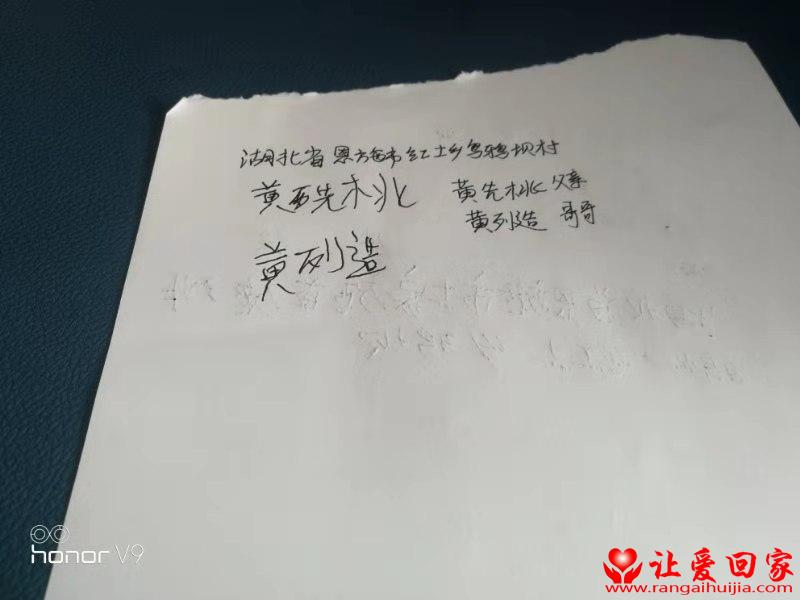 湖北省恩施市红土乡乌鸦坝村
黄先桃 黄先桃 父亲
黄列造 哥哥
黄列造
honor V9
让爱回家
www.rangaihuijia.com